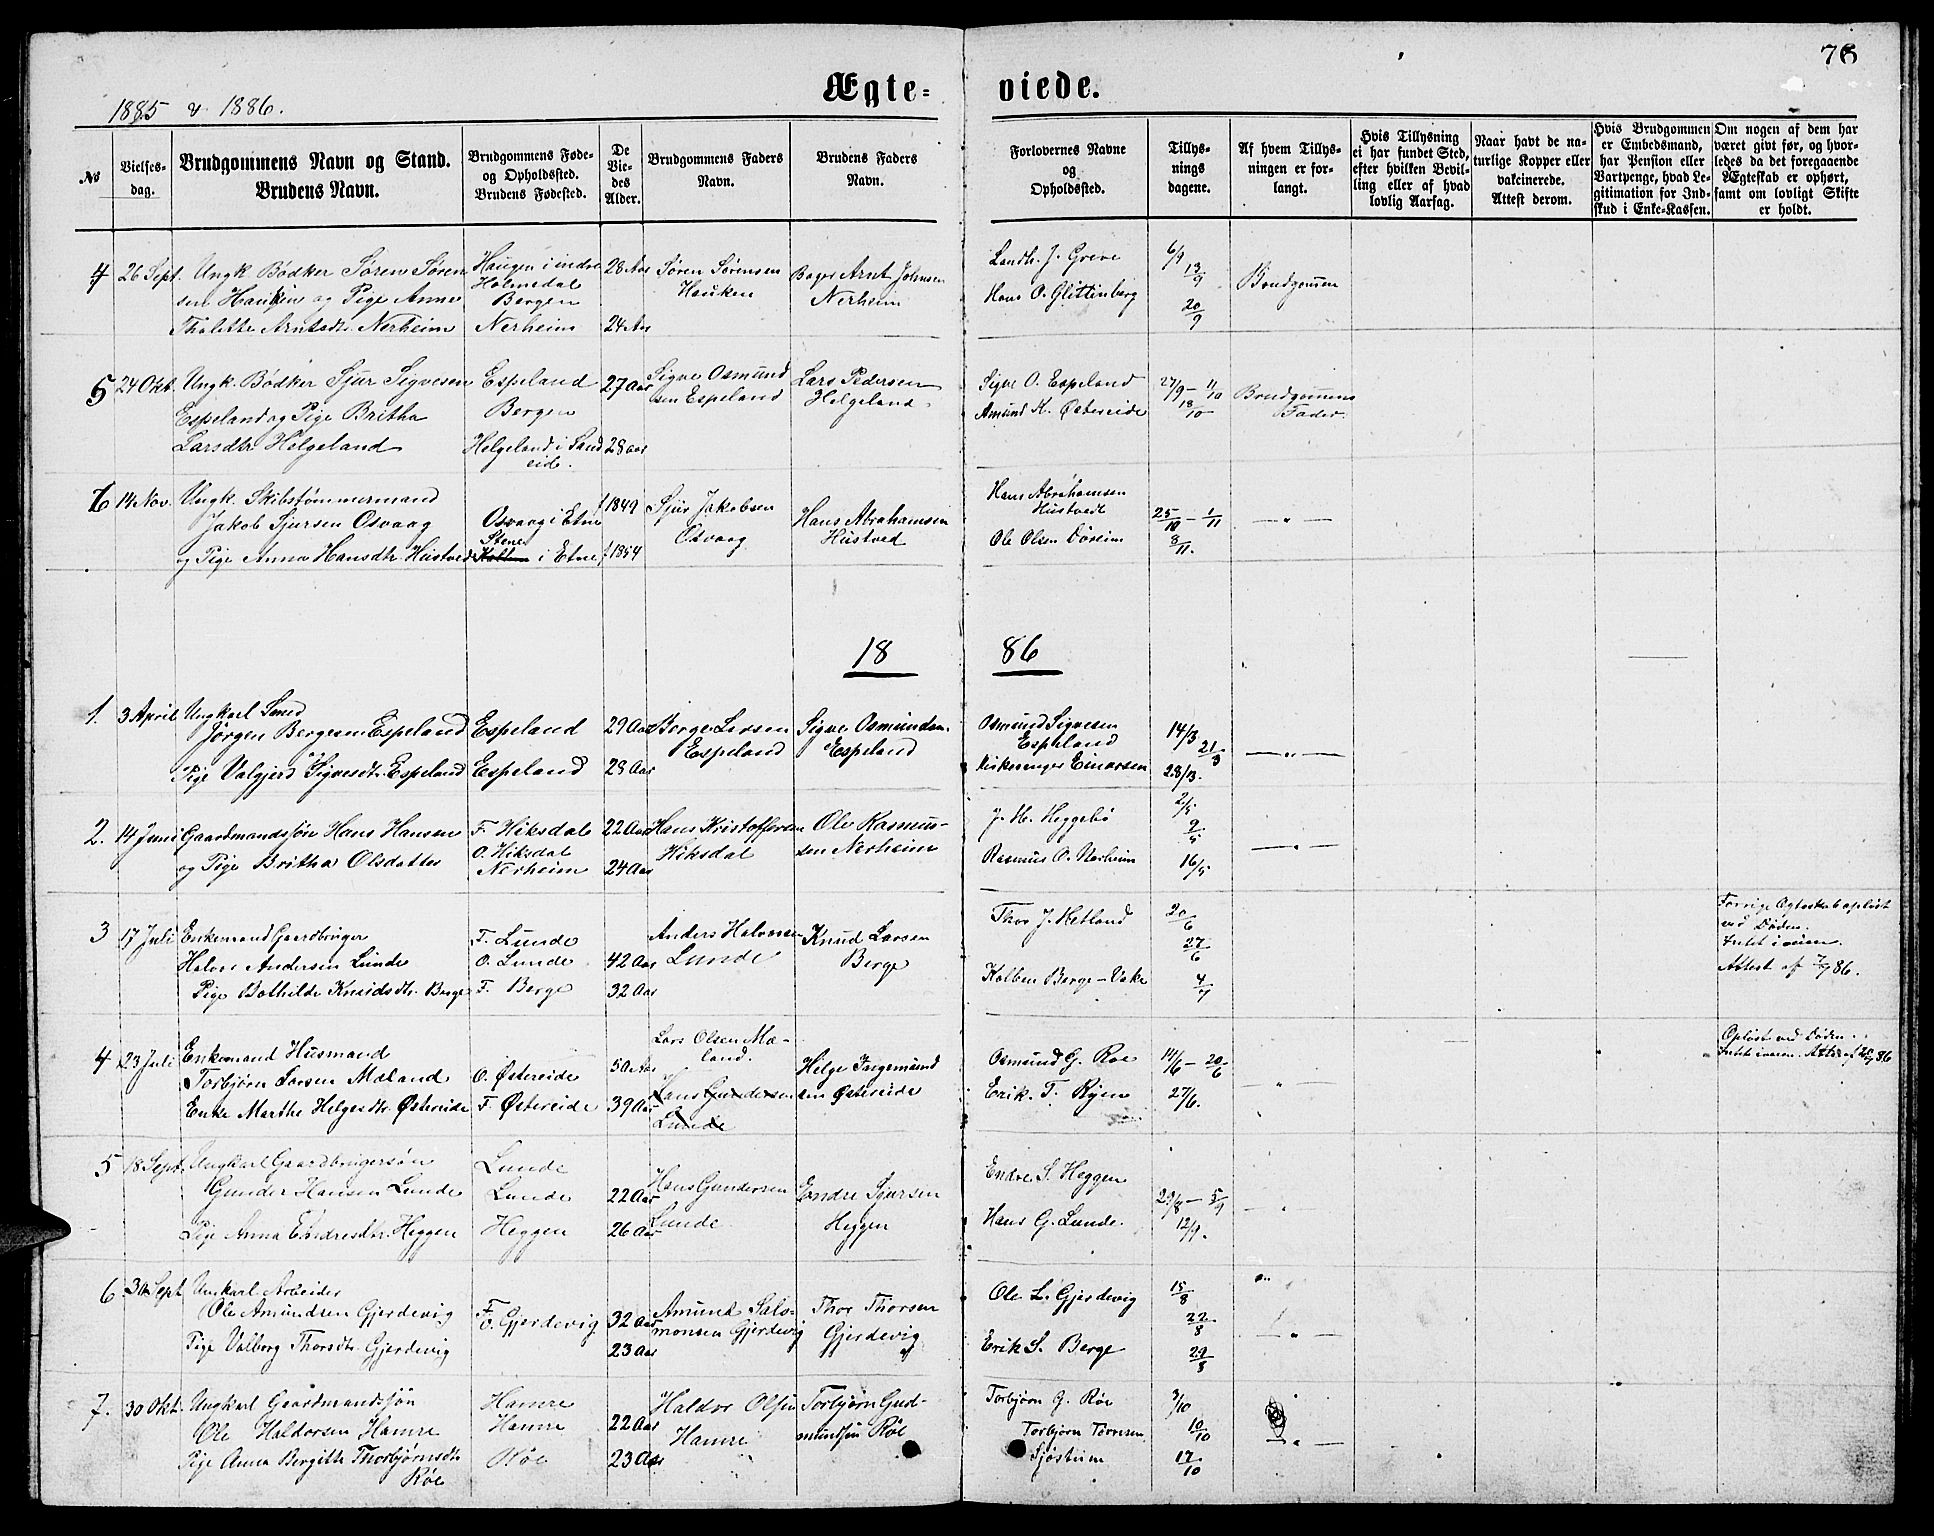 76
1885 & 1886.
Ægte- viede.
№
Vielses-
dag.
Brudgommens Navn og Stand.
Brudens Navn.
Brudgommens Føde-
og Opholdssted.
Brudens Fødested.
De
Vie-
des
Alder.
Brudgommens Faders
Navn.
Brudens Faders
Navn.
Forlovernes Navne
og
Opholdssted.
Tillys-
nings
dagene.
Af hvem Tillys-
ningen er for-
langt.
Hvis Tillysning
ei har fundet Sted,
efter hvilken Bevil-
ling eller af hvad
lovlig Aarsag.
Naar havt de na-
turlige Kopper eller
vakcinerede.
Attest derom.
Hvis Brudgommen
er Embedsmand,
har Pension eller
Vartpenge, hvad Le-
gitimation for Ind-
skud i Enke-Kassen.
Om nogen af dem har
været givt før, og hvor-
ledes da det foregaaende
Ægteskab er ophørt,
samt om lovligt Skifte
er holdt.
4
26 Sept.
Ungk. Bødker Søren Søren-
sen Hauken og Pige Anna
Thalette Arntsdtr Nerheim
Haugen i indre
Holmedal
Bergen
Nerheim
28 Aar
24 Aar
Søren Sørensen
Hauken
Bager Arnt Johnsen
Nerheim
Landh. J. Greve
Hans O. Glittinberg
6/9
13/9
20/9
Brudgommen
5
24 Okt.
Ungk. Bødker Sjur Sigvesen
Espeland og Pige Britha
Larsdtr Helgeland
Espeland
Bergen
Helgeland i Sand
eid.
27 Aar
28 aar
Sigve Osmund
sen Espeland
Lars Pedersen
Helgeland
Sigve O. Espeland
Amund K. Østereide
27/9 - 11/10
18/10
Brudgommens
Fader
6
14 Nov.
Ungk. Skibstømmermand
Jakob Sjursen Osvaag
og Pige Anna Hansdtr Hustved
Osvaag i Etne
Stene
i Etne
f 1849
f 1854
Sjur Jakobsen
Osvaag
Hans Abrahamsen
Hustved
Hans Abrahamsen
Hustvedt
Ole Olsen Døreim
25/10 - 1/11
8/11.
— " —
18 86
1.
3 April
Ungkarl Smed
Jørgen Bergesen Espeland
Pige Valgjerd Sigvesdtr. Espeland
Espeland
Espeland
29 Aar
28 Aar
Borge Larsen
Espeland
Sigve Osmundsen
Espeland
Osmund Sigvesen
Espeland
Kirkesanger Einarsen
14/3
21/3
28/3.
— " —
2.
14 Juni
Gaardmandssøn Hans Hansen
og Pige Britha Olsdatter
F. Hiksdal
O. Hiksdal
Nerheim
22 Aar
24 Aar
Hans Kristoffersen
Hiksdal
Ole Rasmus-
sen Nerheim
J. H. Heggebø
Rasmus O. Nerheim
2/5
9/5
16/5
— " —
3
17 Juli
Enkemand Gaardbruger
Halvor Andersen Lunde
Pige Bothilde Knudsdtr. Berge
F. Lunde
O. Lunde
F. Berge
42 Aar
32 Aar
Anders Halvorsen
Lunde
Knud Larsen
Berge
Thor J. Hetland
Kolben Berge - Vake
20/6
27/6
4/7
Forrige Ægteskab opløst
ved Døden.
Intet i veien.
Attest af 7/7 86.
4
23 Juli
Enkemand Husmand
Torbjørn Larsen Mæland
Enke Marthe Helgesdtr. Østereide
O. Østereide
F. Østereide
50 Aar
39 Aar
Lars Olsen Mæ-
land.
Hans Gundersen
Lunde
Helge Ingemund
sen Østereide
Osmund G. Røe
Erik T. Rygen
14/6 - 20/6
27/6.
— " —
Opløst ved Døden.
Intet i veien. Attest af 20/7 86
5
18 Sept.
Ungkarl Gaardbrugersøn
Gunder Hansen Lunde
Pige Anna Endresdtr. Heggen
Lunde
Lunde
Heggen
22 Aar
26 Aar
Hans Gundersen
Lunde
Endre Sjursen
Heggen
Endre S. Heggen
Hans G. Lunde.
29/8 - 5/9
12/9.
— " —
6
30 Sept
Unkarl Arbeider
Ole Amundsen Gjerdevig
Pige Valborg Thorsdtr. Gjerdevig
F.
O. Gjerdevig
32 Aar
23 Aar
Amund Salo-
monsen Gjerdevig
Thor Thorsen
Gjerdevig
Ole L. Gjerdevig
Erik S. Berge
15/8
22/8
29/8
— " —
7.
30 Okt.
Ungkarl Gaardmandssøn
Ole Haldorsen Hamre
Pige Anna Bergitte Thorbjørnsdtr
Røe
Hamre
Hamre
Røe
22 Aar
23 Aar
Haldor Olsen
Hamre
Torbjørn Gud-
mundsen Røe
Torbjørn G. Røe
Torbjørn Torresen
Sjøstrim
3/10
10/10
17/10
— " —